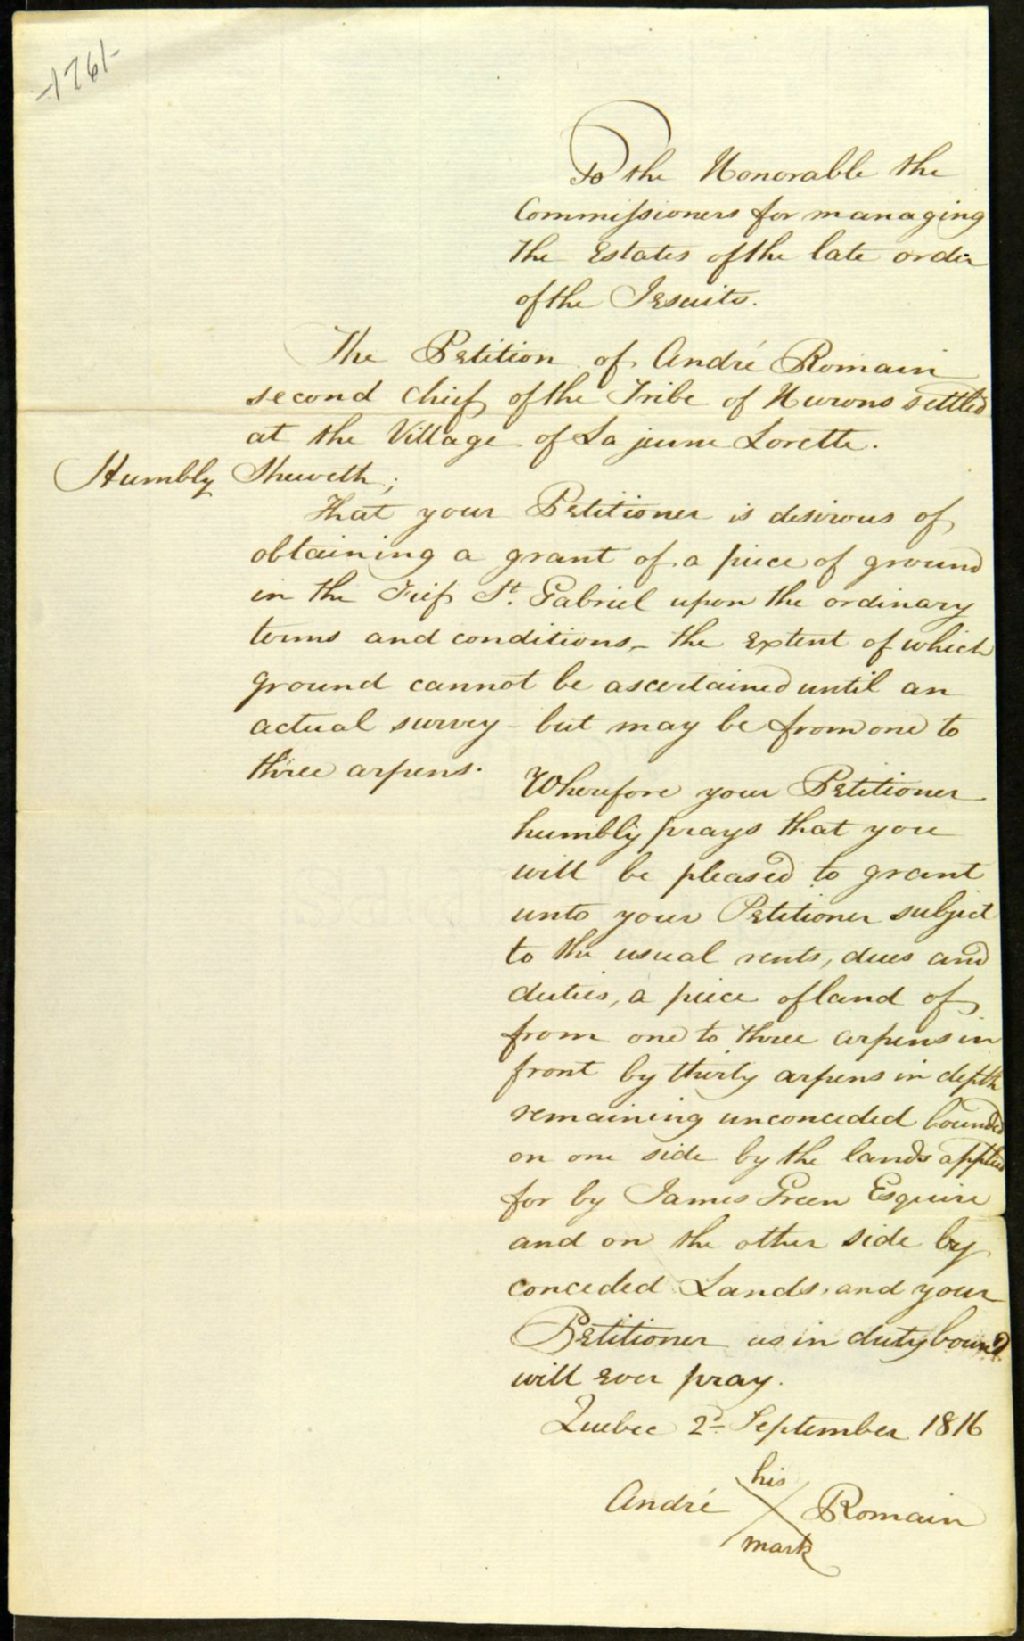 -1761-
To the Honorable the
Commissioners for managing
the Estates of the late order
of the Jesuits.
The Petition of André Romain
second chief of the Tribe of Hurons settled
at the Village of La jeune Lorette.
Humbly Sheweth;
That your Petitioner is desirous of
obtaining a grant of a piece of ground
in the Fief St. Gabriel upon the ordinary
terms and conditions, the extent of which
ground cannot be ascertained until an
actual survey but may be from one to
three arpens.
Wherefore your Petitioner
humbly prays that you
will be pleased to grant
unto your Petitioner subject
to the usual rents, dues and
duties, a piece of land of
from one to three arpens in
front by thirty arpens in depth
remaining unconceded bounded
on one side by the lands applied
for by James Green Esquire
and on the other side by
conceded Lands. and your
Petitioner as in duty bound
will ever pray.
Quebec 2d September 1816
his
André X Romain
mark